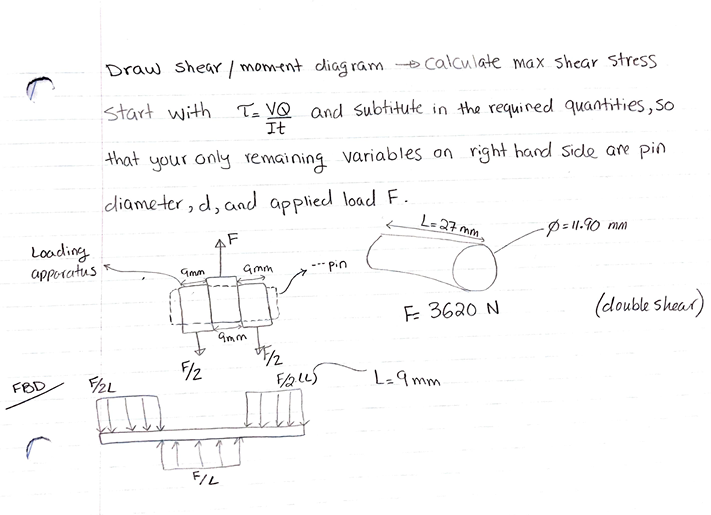 Draw shear / moment diagram → calculate max shear stress
Start with τ = VQ/It and subtitute in the required quantities, so
that your only remaining variables on right hand side are pin
diameter, d, and applied load F.
L=27mm
ϕ=11.90 mm
F
Loading
apparatus
9mm 9mm
--- pin
F= 3620 N (double shear)
9mm
F/2 F/2
FBD F/2L F/2(L) L=9mm
F/L